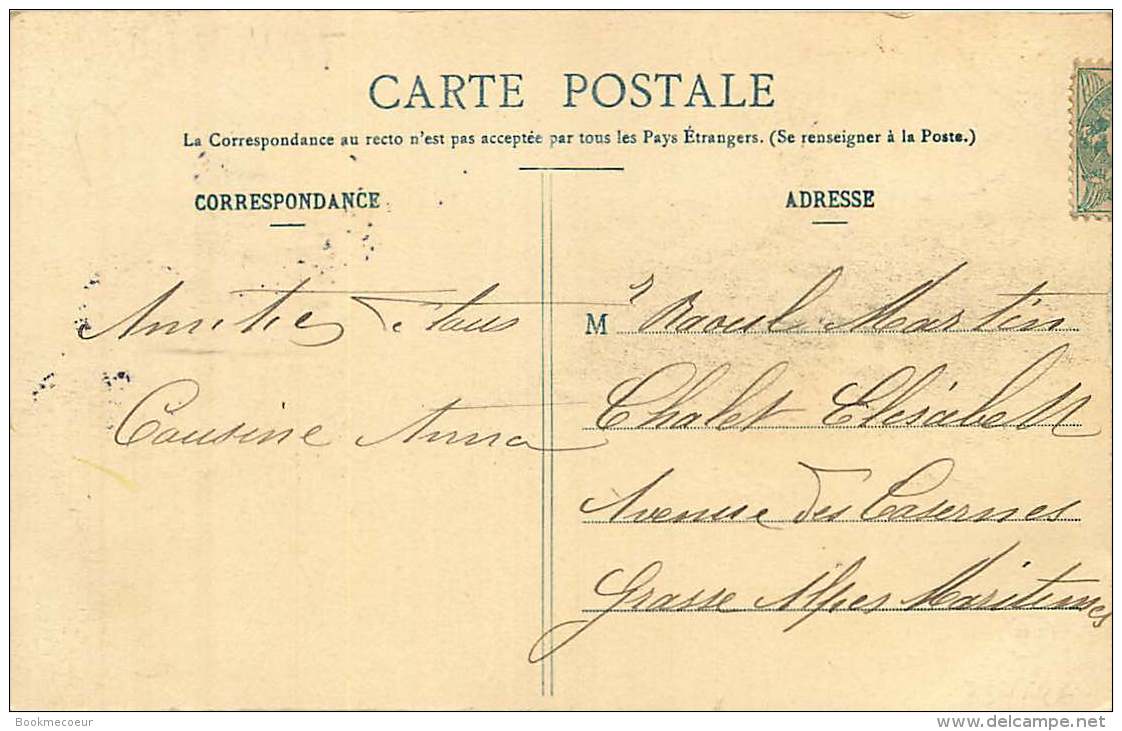 CARTE POSTALE
La Correspondance au recto n'est pas acceptée par tous les Pays Étrangers. (Se renseigner à la Poste.)
CORRESPONDANCE
Amitiés à tous
Cousine Anna
ADRESSE
M r Raoul Martin
Chalet Elisabeth
Avenue des Casernes
Grasse Alpes Maritimes
Bookmecoeur
www.delcampe.net